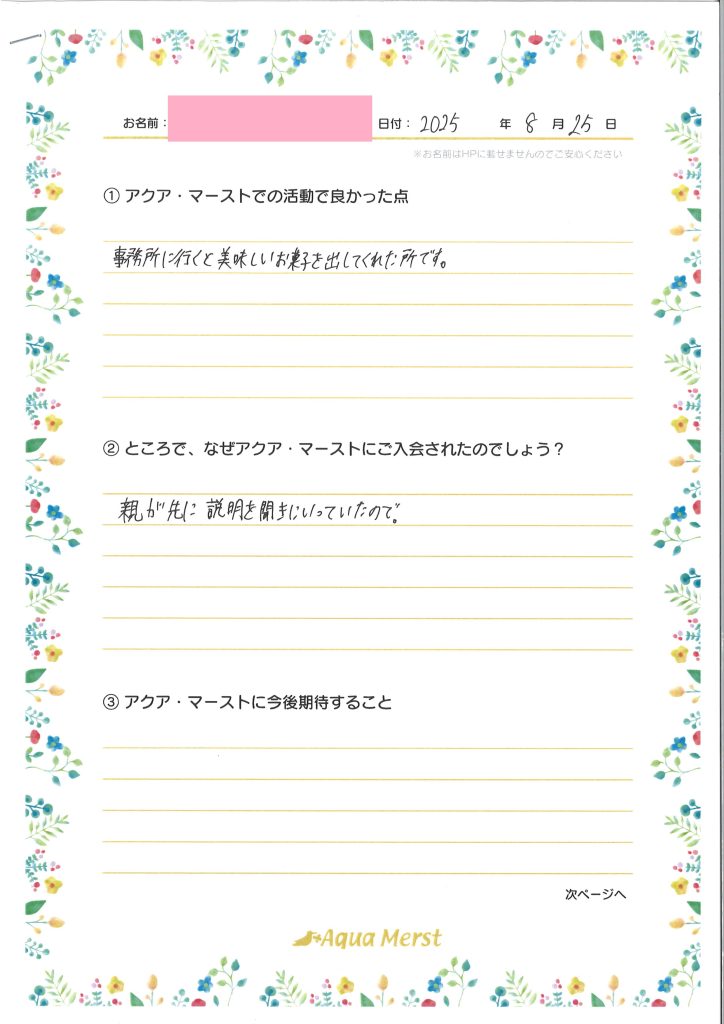 お名前： 日付： 2025 年 8 月 25 日
※お名前はHPに載せませんのでご安心ください
① アクア・マーストでの活動で良かった点
事務所に行くと美味しいお菓子を出してくれた所です。
② ところで、なぜアクア・マーストにご入会されたのでしょう？
親が先に説明を聞きにいっていたので。
③ アクア・マーストに今後期待すること
次ページへ
Aqua Merst